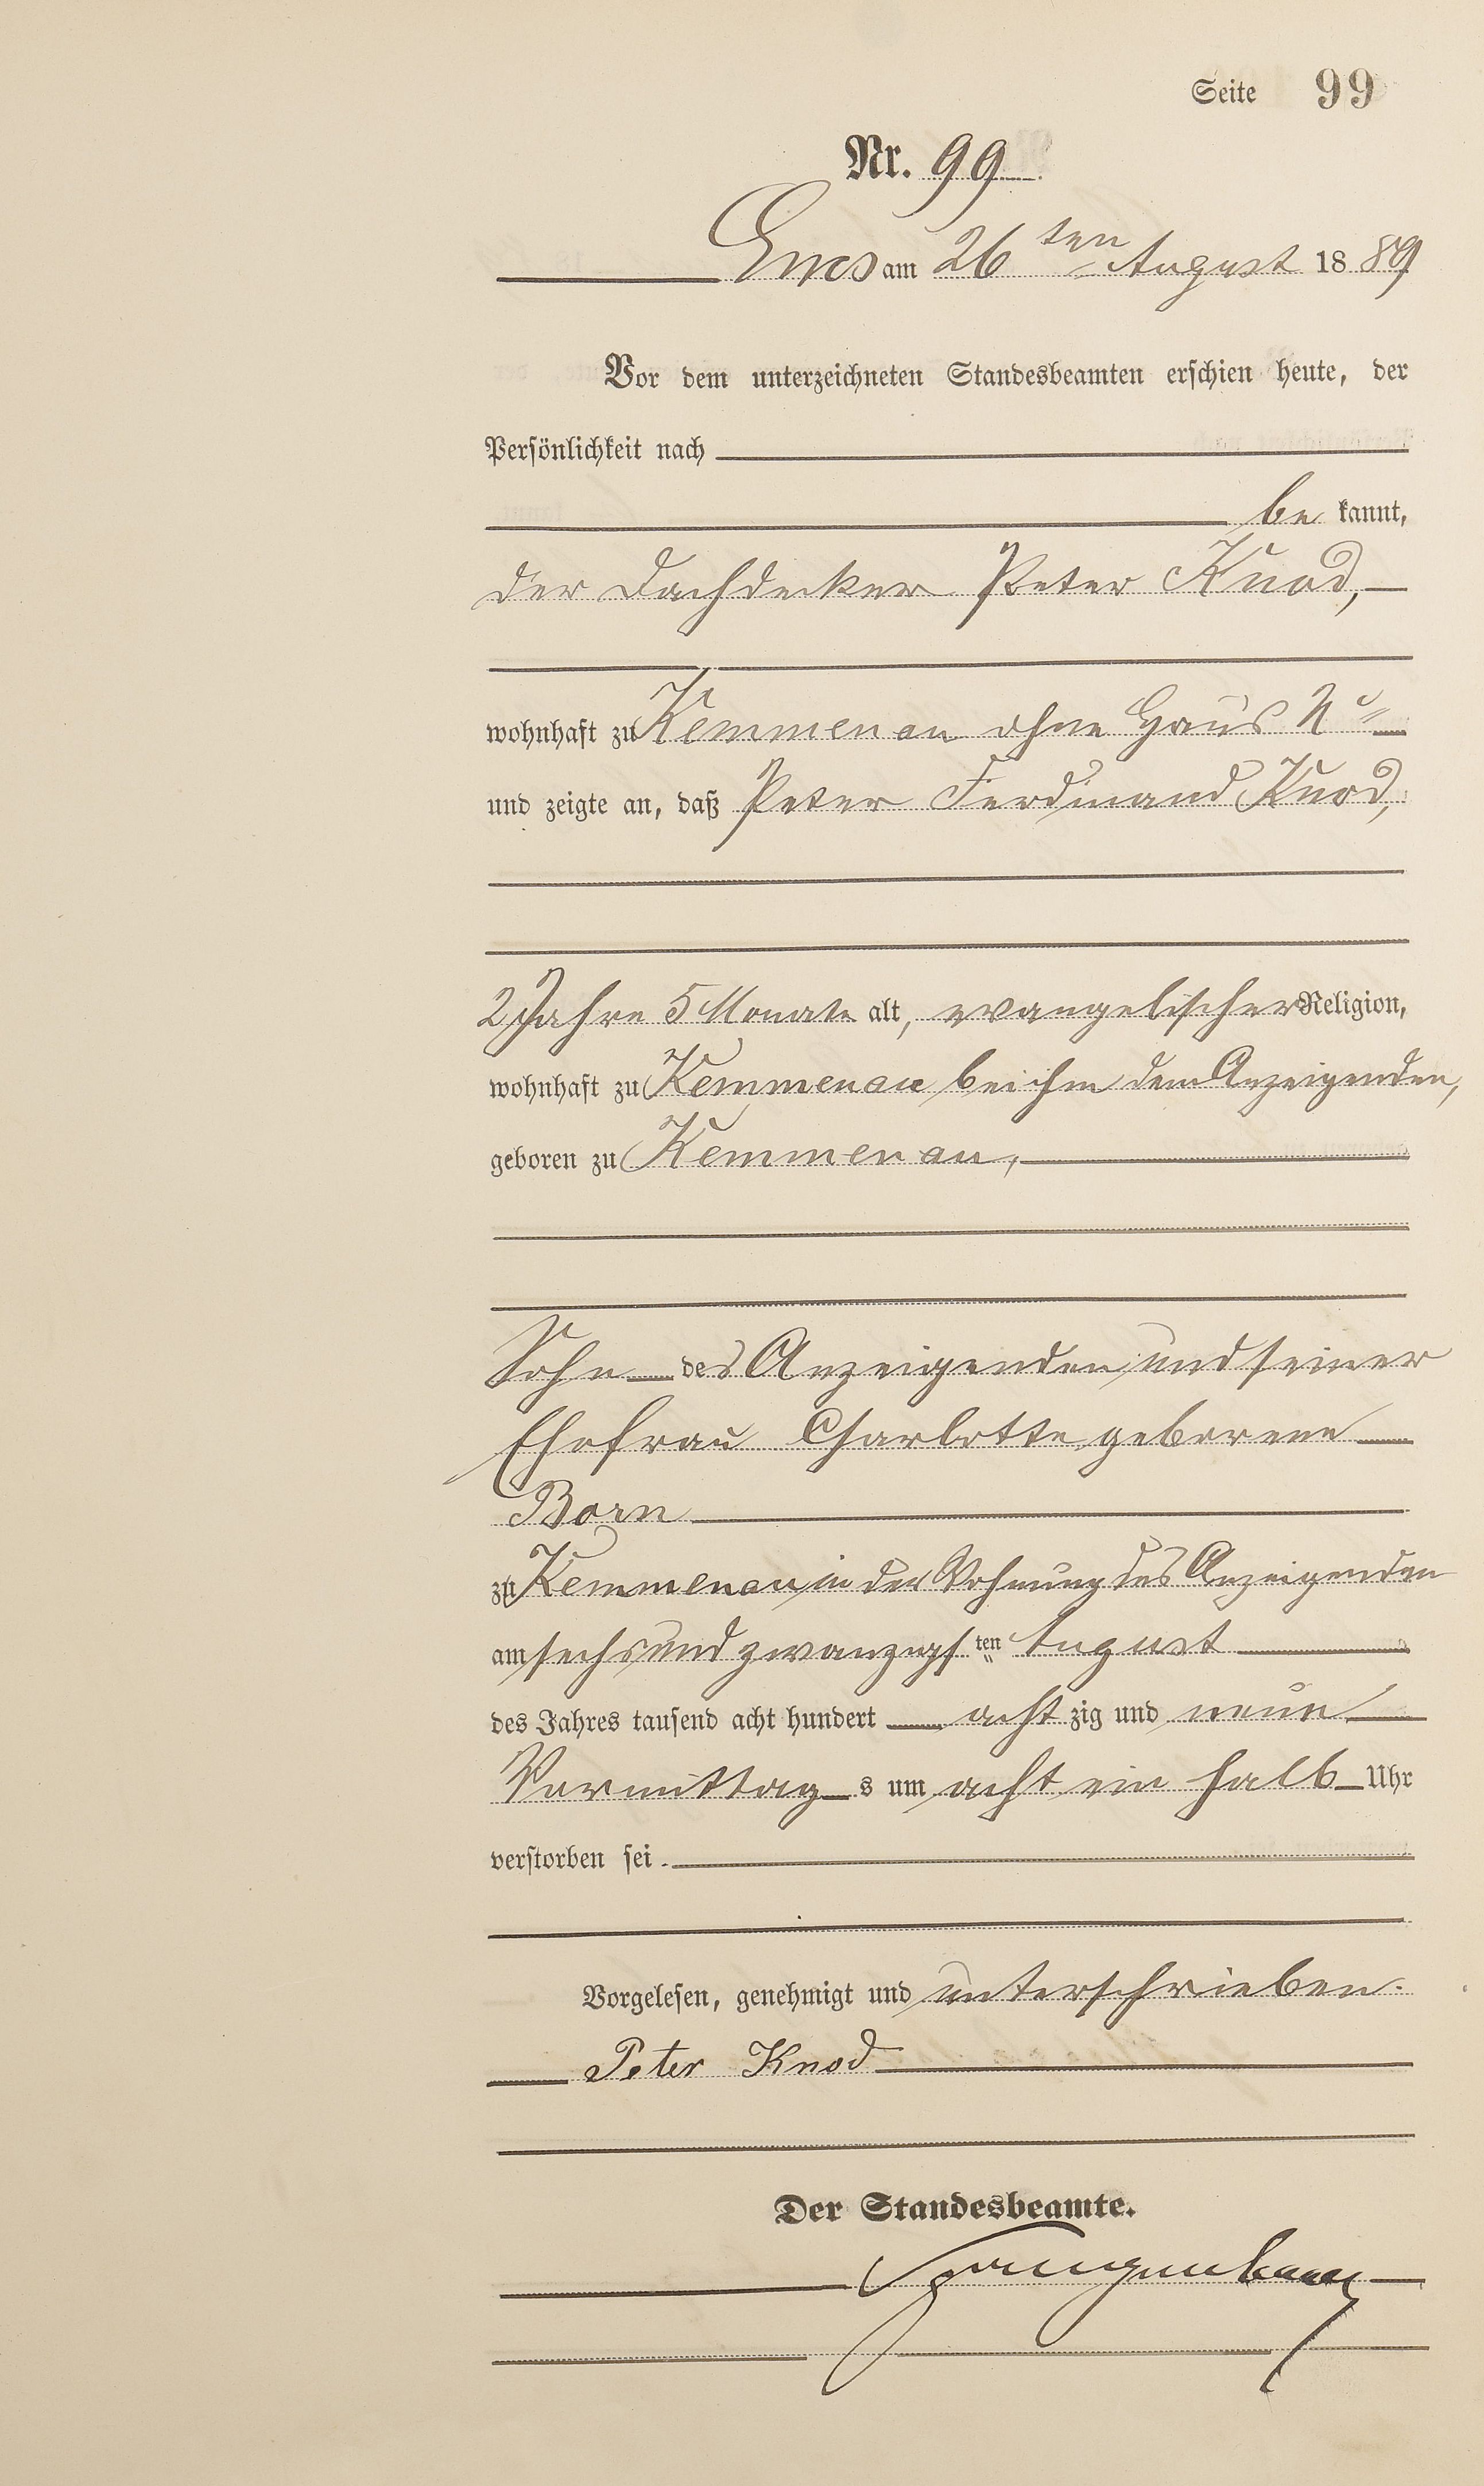 Seite 99
Nr. 99
Ems am 26ten August 1889
Vor dem unterzeichneten Standesbeamten erschien heute, der
Persönlichkeit nach
be kannt,
der Dachdecker Peter Knod,
wohnhaft zu Kemmenau ohne Haus No
und zeigte an, daß Peter Ferdinand Knod,
2 Jahre 5 Monate alt, evangelischer Religion,
wohnhaft zu Kemmenau bei ihm dem Anzeigenden,
geboren zu Kemmenau,
Sohn des Anzeigenden und seiner
Ehefrau Charlotte geborene
Born
zu Kemmenau in der Wohnung des Anzeigenden
am sechsundzwanzigsten August
des Jahres tausend acht hundert achtzig und neun
Vormittags um acht ein halb Uhr
verstorben sei.
Vorgelesen, genehmigt und unterschrieben.
Peter Knod
Der Standesbeamte.